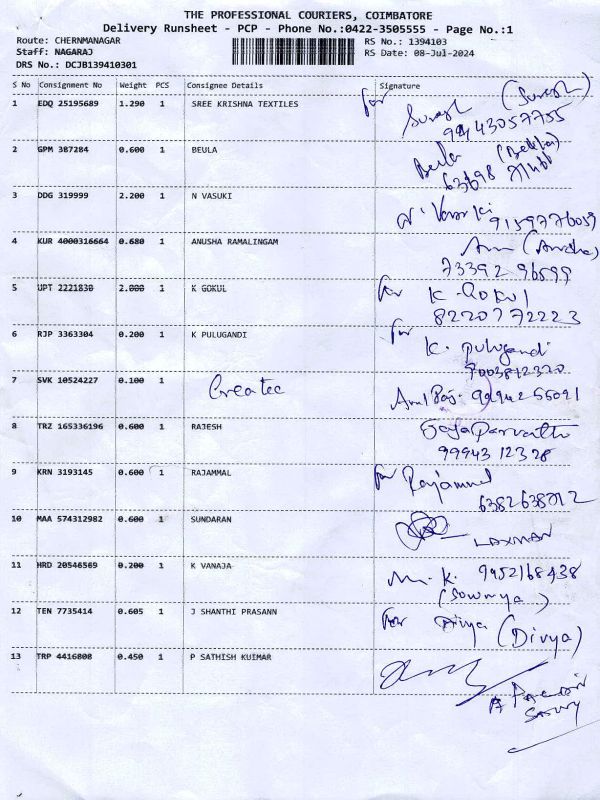 THE PROFESSIONAL COURIERS, COIMBATORE
Delivery Runsheet - PCP - Phone No.:0422-3505555 - Page No.:1
Route: CHERNMANAGAR
RS No.: 1394103
Staff: NAGARAJ
RS Date: 08-Jul-2024
DRS No.: DCJB139410301
S No Consignment No Weight PCS Consignee Details Signature
1 EDQ 25195689 1.290 1 SREE KRISHNA TEXTILES for Suresh (Suresh)
9443057755
2 GPM 387284 0.600 1 BEULA Beula
63698
3 DDG 319999 2.200 1 N VASUKI N. Vasuki
9159776059
4 KUR 4000316664 0.680 1 ANUSHA RAMALINGAM
73392 96599
5 UPT 2221830 2.000 1 K GOKUL for K. Gokul
8220772223
6 RJP 3363304 0.200 1 K PULUGANDI for K. Pulugandi
7003812320
7 SVK 10524227 0.100 1 Createc Arul Raj
8 TRZ 165336196 0.600 1 RAJESH
99943 12328
9 KRN 3193145 0.600 1 RAJAMMAL for Rajammal
10 MAA 574312982 0.600 1 SUNDARAN LAXMAN
11 HRD 20546569 0.200 1 K VANAJA M. K. 9952168438
(Sowmya)
12 TEN 7735414 0.605 1 J SHANTHI PRASANN for Divya (Divya)
13 TRP 4416808 0.450 1 P SATHISH KUIMAR